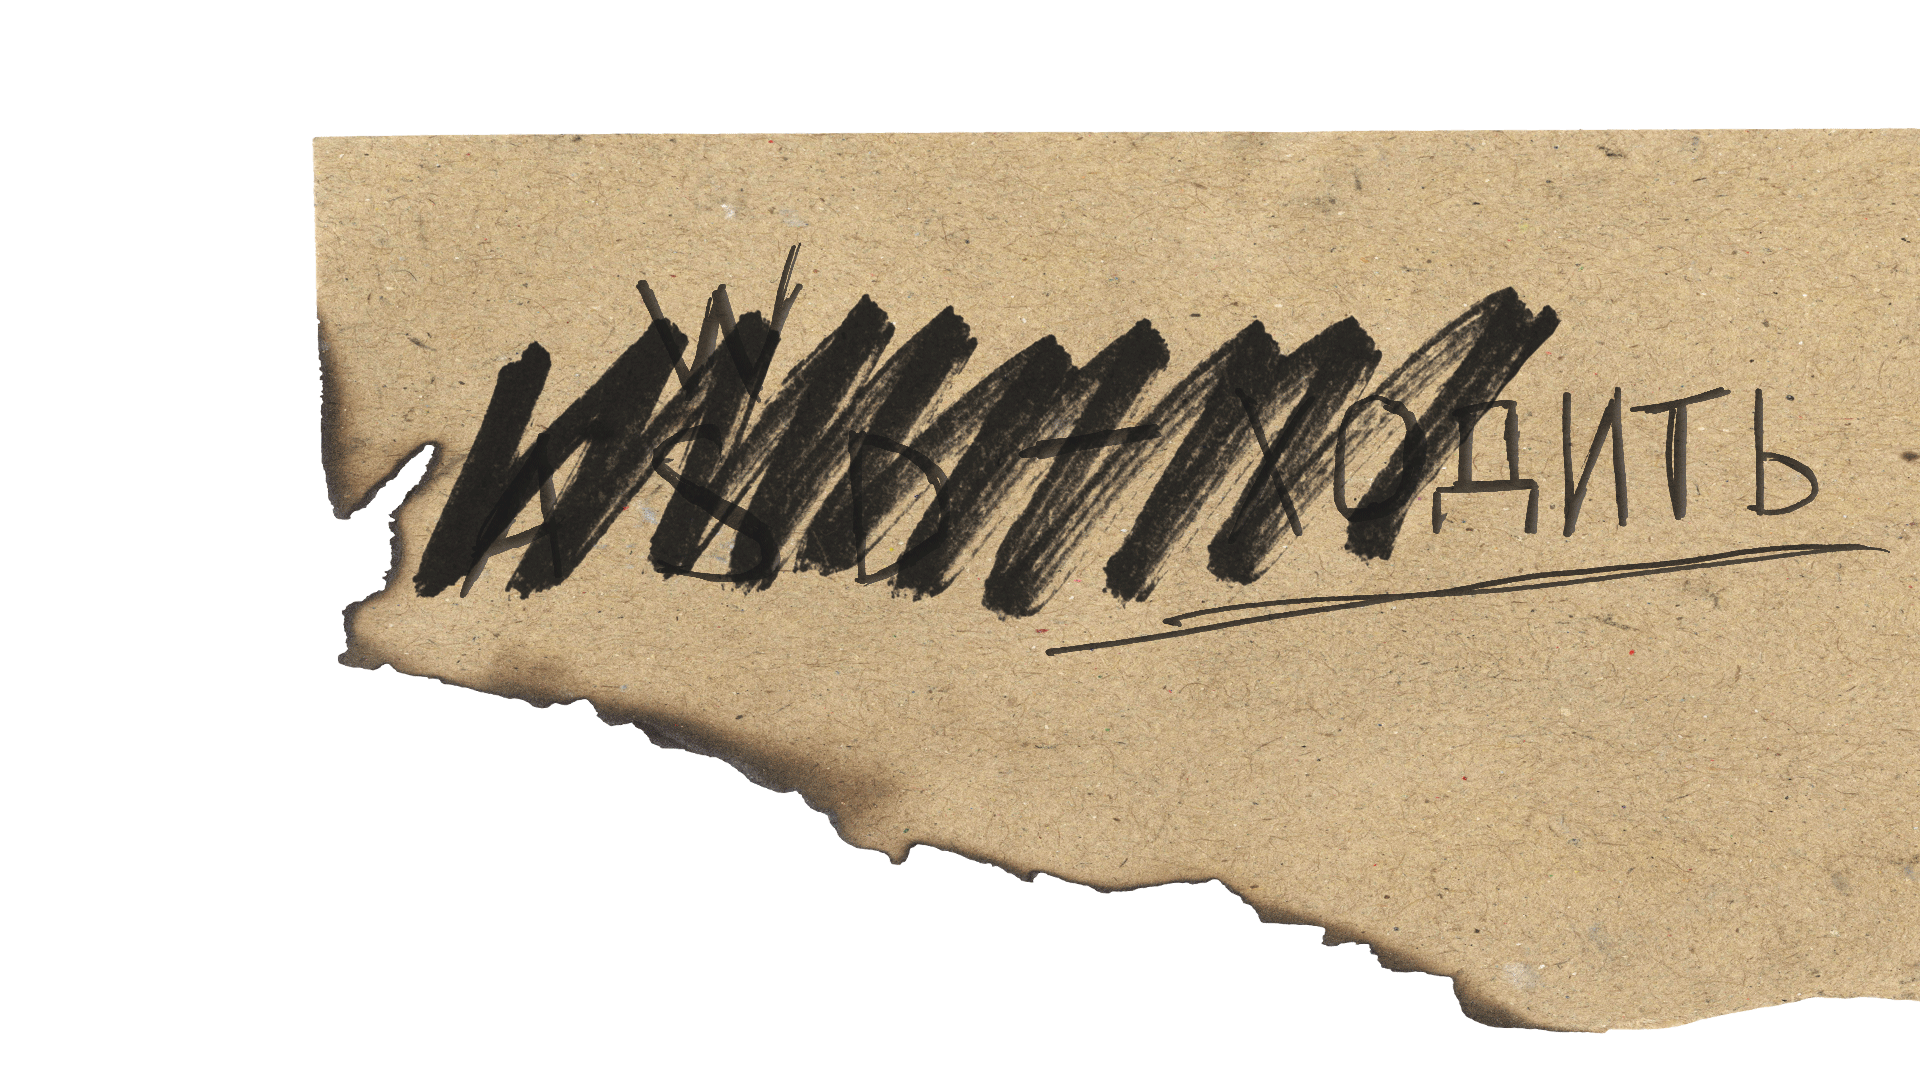 W
ASD - ХОДИТЬ